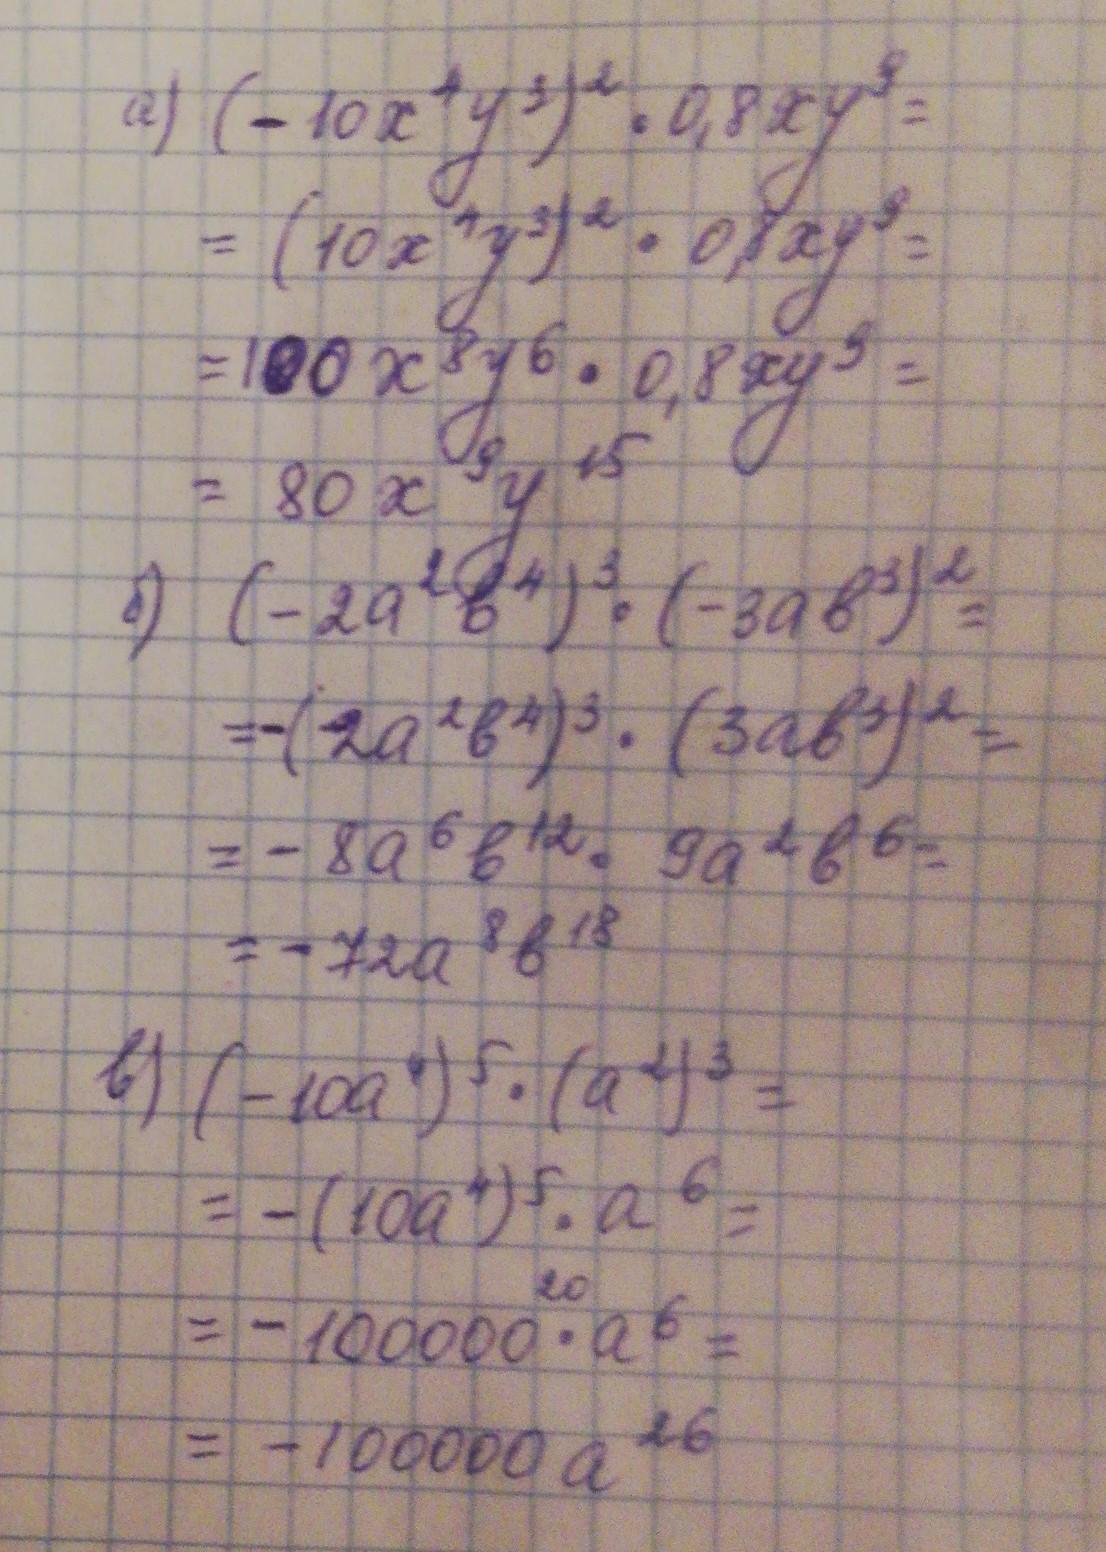 а) (-10x⁴y³)² · 0,8xy⁹ =
= (10x⁴y³)² · 0,8xy⁹ =
= 100x⁸y⁶ · 0,8xy⁹ =
= 80x⁹y¹⁵
б) (-2a²b⁴)³ · (-3ab³)² =
= -(2a²b⁴)³ · (3ab³)² =
= -8a⁶b¹² · 9a²b⁶ =
= -72a⁸b¹⁸
в) (-10a⁴)⁵ · (a²)³ =
= -(10a⁴)⁵ · a⁶ =
= -100000²⁰ · a⁶ =
= -100000a²⁶